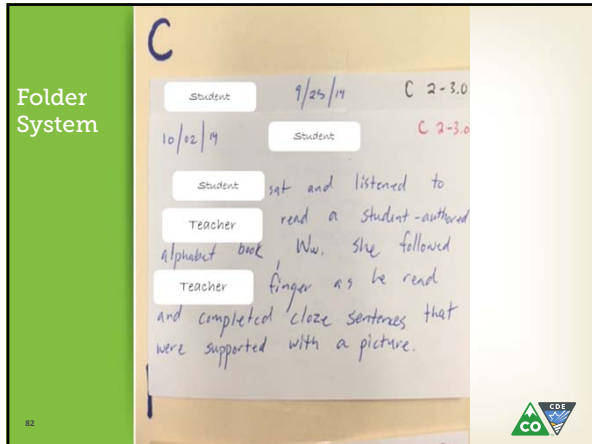 Folder
System
C
Student 9/25/14 C 2-3.0
10/02/14 Student C 2-3.0
Student sat and listened to
Teacher read a student-authored
alphabet book, Ww. She followed
Teacher finger as he read
and completed cloze sentences that
were supported with a picture.
82
CO CDE